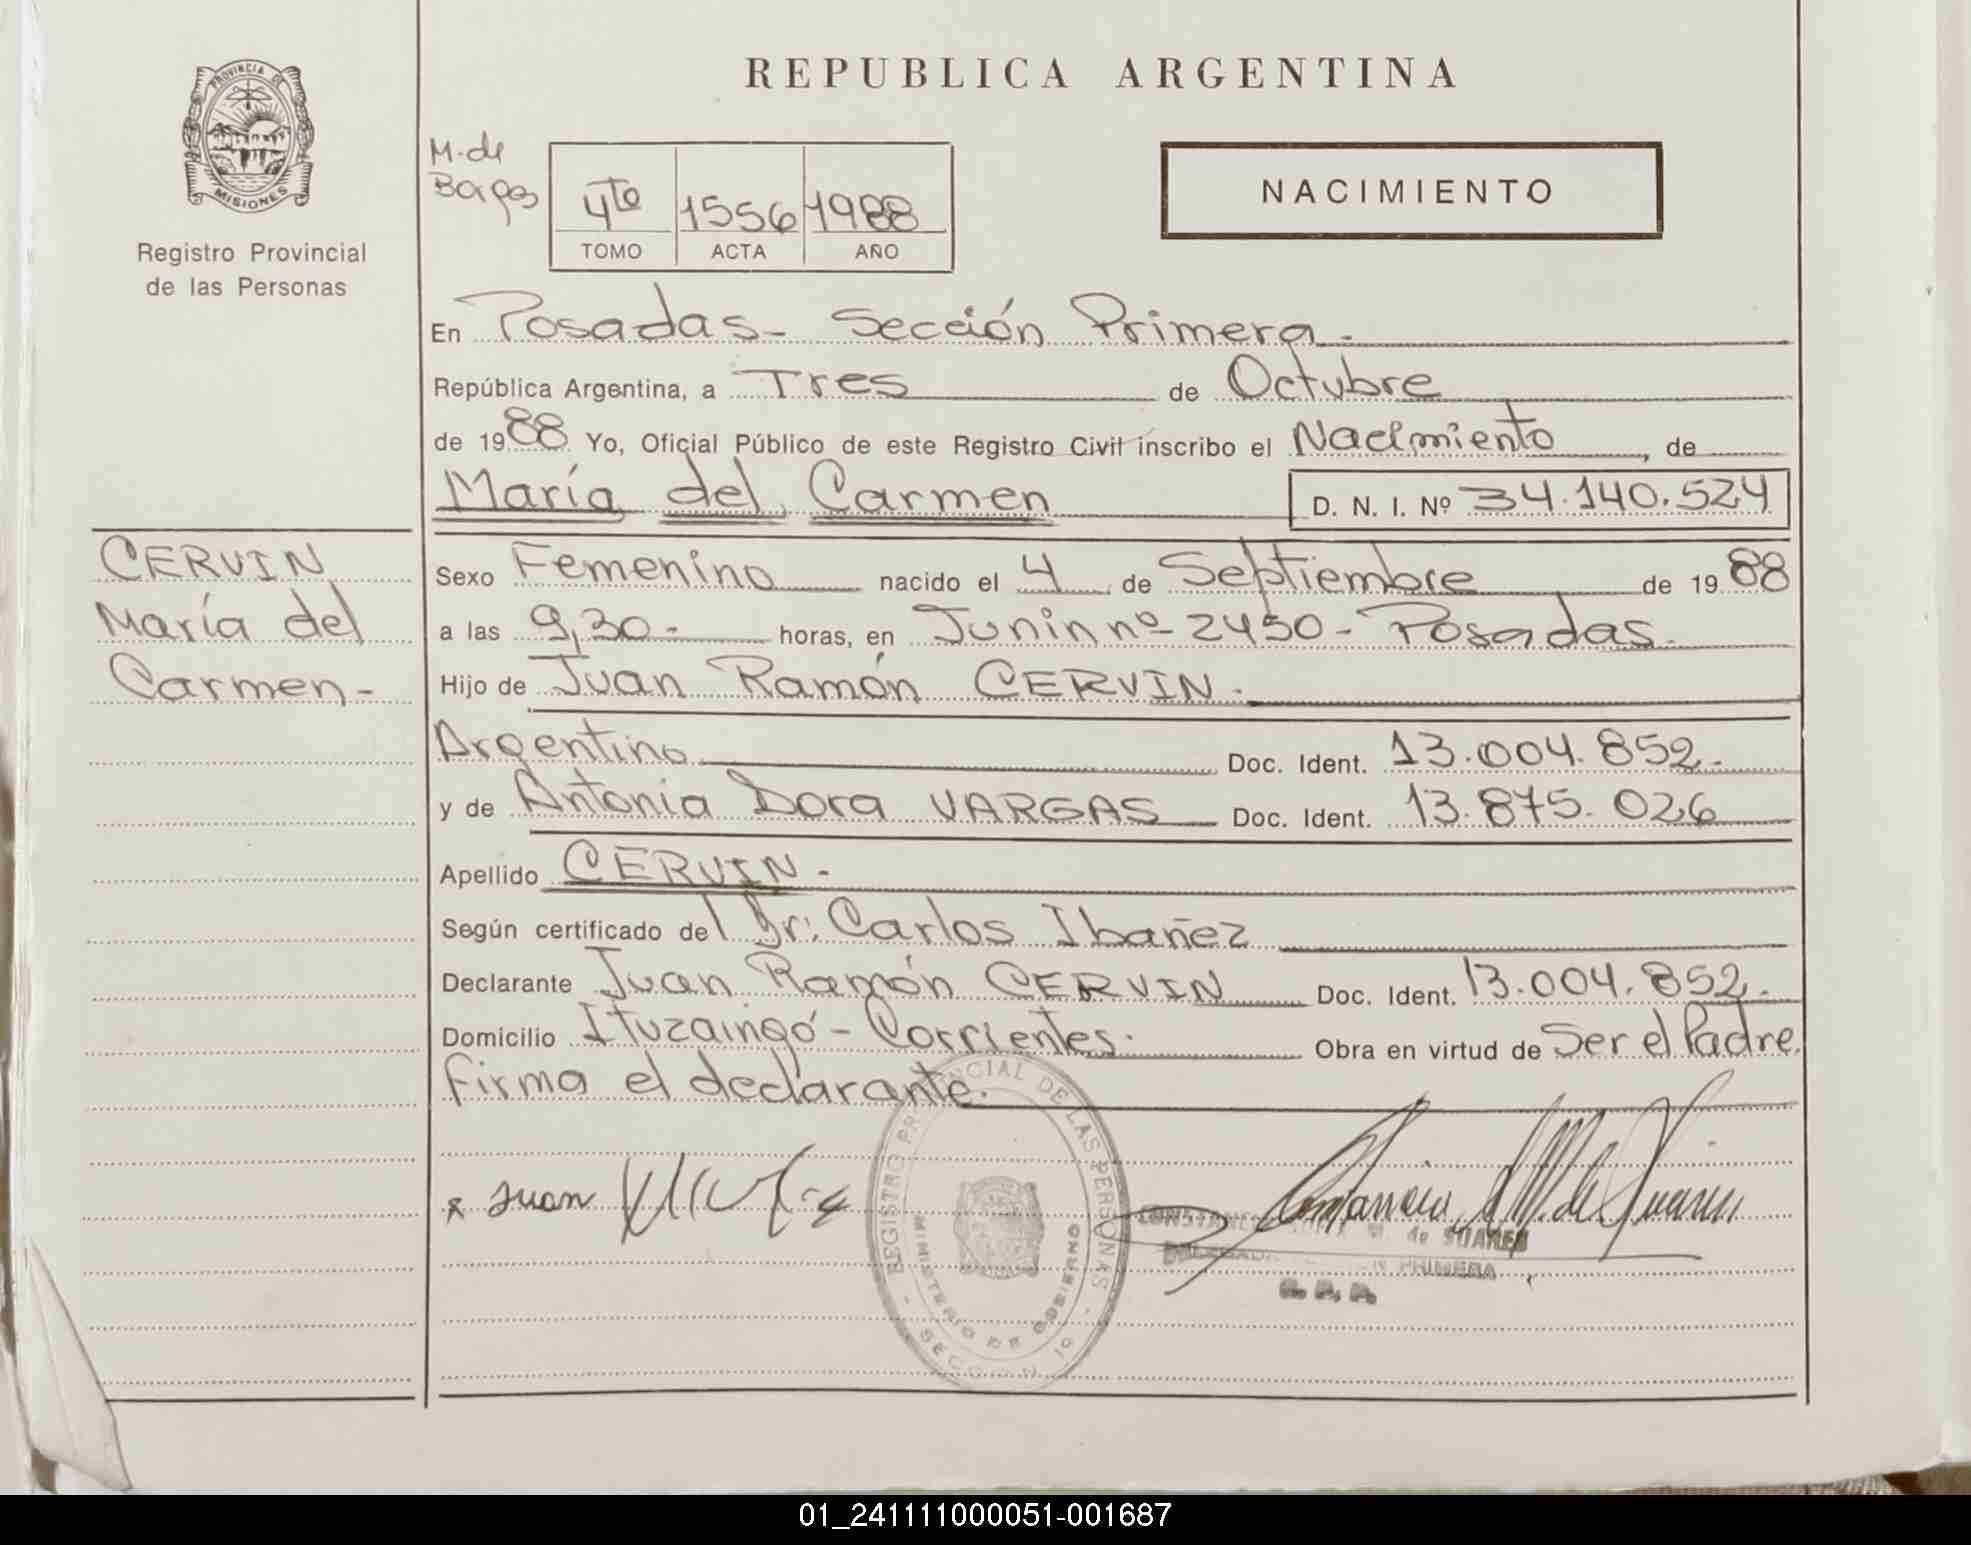 REPUBLICA ARGENTINA
PROVINCIA DE
MISIONES
Registro Provincial
de las Personas
M. de
4to 1556 1988
TOMO ACTA AÑO
NACIMIENTO
En Posadas- Sección Primera.
República Argentina, a Tres de Octubre
de 1988 Yo, Oficial Público de este Registro Civil inscribo el Nacimiento, de
María del Carmen D. N. I. Nº 34.140.524
CERVIN
María del
Carmen-
Sexo Femenino nacido el 4 de Septiembre de 1988
a las 9,30- horas, en Junin nº 2450- Posadas.
Hijo de Juan Ramón CERVIN.
Argentino Doc. Ident. 13.004.852.
y de Antonia Dora VARGAS Doc. Ident. 13.875.026
Apellido CERVIN.
Según certificado del Dr. Carlos Ibañez
Declarante Juan Ramón CERVIN Doc. Ident. 13.004.852.
Domicilio Ituzaingó- Corrientes. Obra en virtud de Ser el Padre.
firma el declarante.
x Juan
REGISTRO PROVINCIAL DE LAS PERSONAS
MINISTERIO DE GOBIERNO
SECCION 1º
M. de SUAREZ
PRIMERA
R. P. P.
01_241111000051-001687